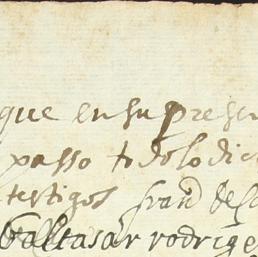 que en su presen
passo todo lo dic
testigos fran de
baltasar rodrige